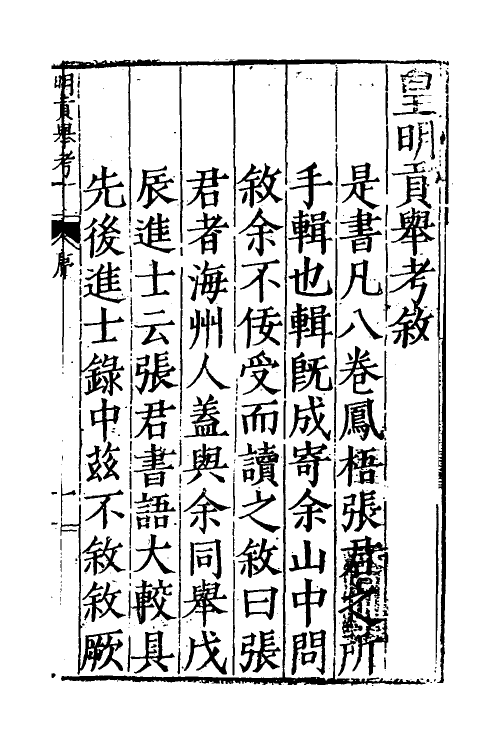 皇明貢舉考敘
是書凡八卷鳳梧張君之所
手輯也輯既成寄余山中問
敘余不佞受而讀之敘曰張
君者海州人蓋與余同舉戊
辰進士云張君書語大較具
先後進士錄中玆不敘敘厥
明貢舉考 序 一